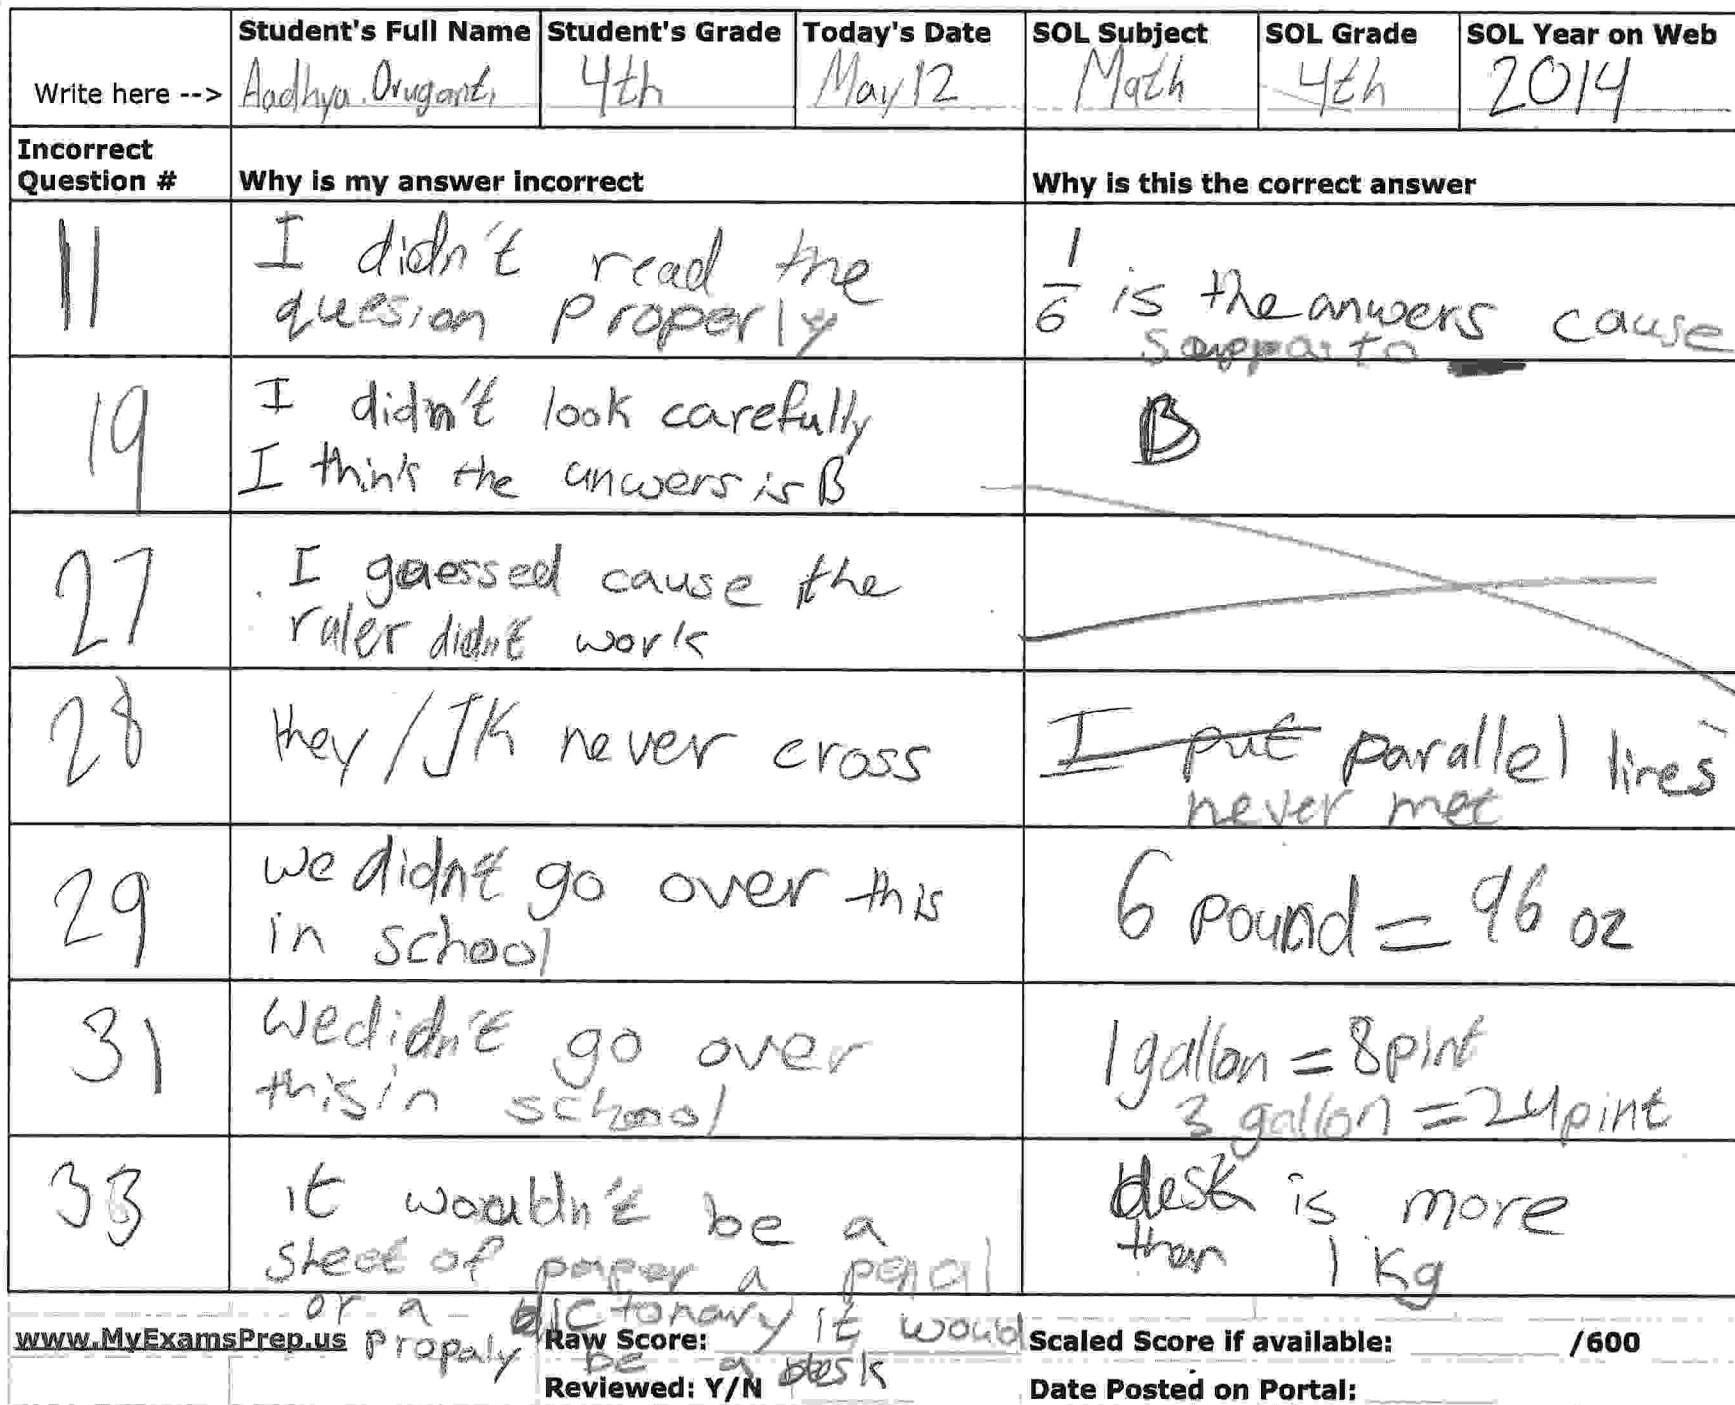 Student's Full Name Student's Grade Today's Date SOL Subject SOL Grade SOL Year on Web
Write here --> Aadhya Oruganti 4th May 12 Math 4th 2014
Incorrect
Question # Why is my answer incorrect Why is this the correct answer
11
I didn't read the
quesion properly
1/6 is the anwers cause
19
I didn't look carefully
I think the anwers is B
B
27
I guessed cause the
ruler didn't work
28
they / JK never cross
I put parallel lines
never met
29
we didn't go over this
in school
6 pound = 96 oz
31
We didn't go over
this in school
1 gallon = 8 pint
3 gallon = 24 pint
33
it wouldn't be a
sheet of paper a
or a dictonary it would
propaly be a desk
desk is more
than 1 Kg
www.MyExamsPrep.us Raw Score: Scaled Score if available: /600
Reviewed: Y/N Date Posted on Portal: